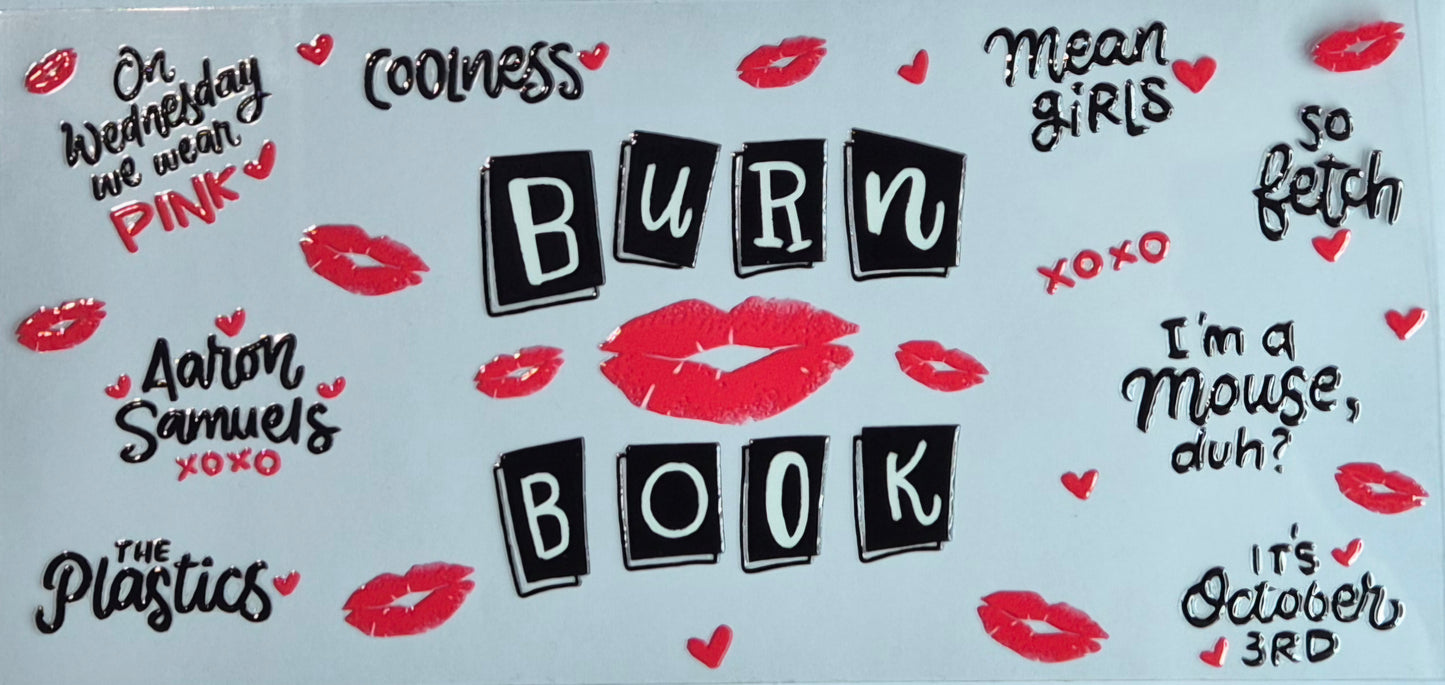 On
Wednesday
we wear
PINK
COOLNESS
mean
giRLS
so
fetch
BuRn
xoxo
Aaron
Samuels
xoxo
I'm a
Mouse,
duh?
BOOK
THE
Plastics
IT'S
October
3RD